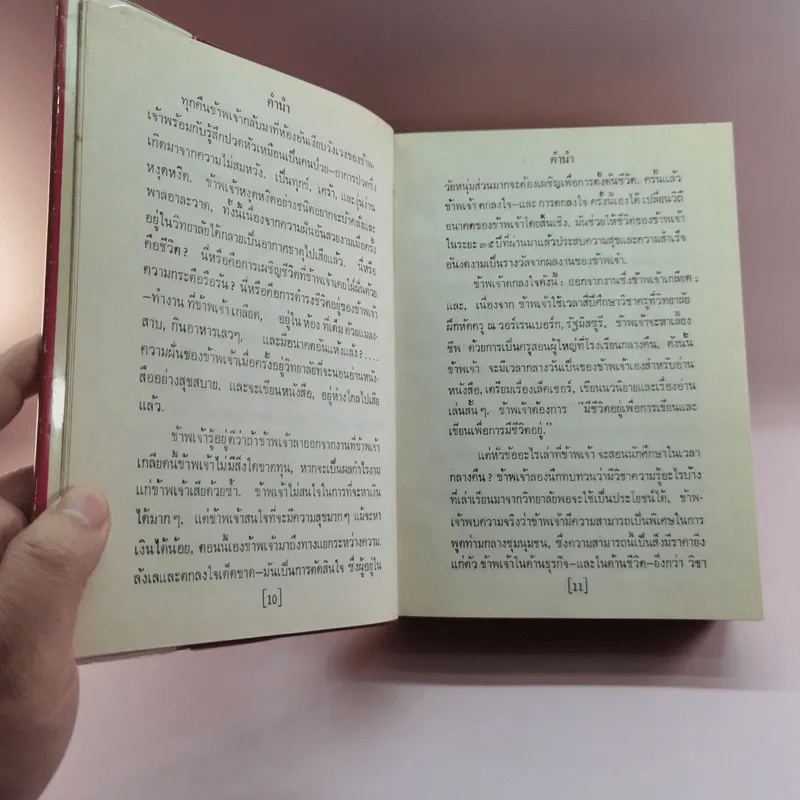 คำนำ
ทุกคืนข้าพเจ้ากลับมาที่ห้องอันเงียบวังเวงของข้าพ-
เจ้าพร้อมกับรู้สึกปวดหัวเหมือนเป็นคนป่วย–อาการปวดซึ่ง
เกิดมาจากความไม่สมหวัง, เป็นทุกข์, เศร้า, และงุ่นง่าน
หงุดหงิด. ข้าพเจ้าหงุดหงิดอย่างชนิดอยากจะบ้าคลั่งและ
พาลอาละวาด, ทั้งนี้เนื่องจากความฝันอันสวยงามเมื่อครั้ง
อยู่ในวิทยาลัยได้กลายเป็นอากาศธาตุไปเสียแล้ว. นี่หรือ
คือชีวิต? นี่หรือคือการเผชิญชีวิตที่ข้าพเจ้าเคยใฝ่ฝันด้วย
ความกระตือรือร้น? นี่หรือคือการดำรงชีวิตอยู่ของข้าพเจ้า
–ทำงาน ที่ข้าพเจ้าเกลียด, อยู่ใน ห้อง ที่เต็ม ด้วยแมลง-
สาบ, กินอาหารเลวๆ, และมีอนาคตอันแห้งแล้ง?....
ความฝันของข้าพเจ้าเมื่อครั้งอยู่วิทยาลัยที่จะนอนอ่านหนัง-
สืออย่างสุขสบาย, และจะเขียนหนังสือ, อยู่ห่างไกลไปเสีย
แล้ว.
ข้าพเจ้ารู้อยู่ดีว่าถ้าข้าพเจ้าลาออกจากงานที่ข้าพเจ้า
เกลียดนี้ข้าพเจ้าไม่มีสิ่งใดขาดทุน, หากจะเป็นผลกำไรงาม
แก่ข้าพเจ้าเสียด้วยซ้ำ. ข้าพเจ้าไม่สนใจในการที่จะหาเงิน
ได้มากๆ. แต่ข้าพเจ้าสนใจที่จะมีความสุขมากๆ แม้จะหา
เงินได้น้อย, ตอนนี้เองข้าพเจ้ามาถึงทางแยกระหว่างความ
ลังเลและตกลงใจเด็ดขาด–มันเป็นการตัดสินใจ ซึ่งผู้อยู่ใน
[10]
คำนำ
วัยหนุ่มส่วนมากจะต้องเผชิญเพื่อการตั้งต้นชีวิต. ครั้นแล้ว
ข้าพเจ้า ตกลงใจ–และ การตกลงใจ ครั้งนี้เองได้ เปลี่ยนวิถี
อนาคตของข้าพเจ้าโดยสิ้นเชิง. มันช่วยให้ชีวิตของข้าพเจ้า
ในระยะ ๓๕ ปีที่ผ่านมาแล้วประสบความสุขและความสำเร็จ
อันงดงามเป็นรางวัลจากผลงานของข้าพเจ้า.
ข้าพเจ้าตกลงใจดังนี้: ออกจากงานซึ่งข้าพเจ้าเกลียด;
และ, เนื่องจาก ข้าพเจ้าใช้เวลาสี่ปีศึกษาวิชาครูที่วิทยาลัย
ฝึกหัดครู ณ วอร์เรนเบอร์ก, รัฐมิสซูรี, ข้าพเจ้าจะหาเลี้ยง
ชีพ ด้วยการเป็นครูสอนผู้ใหญ่ที่โรงเรียนกลางคืน. ดังนั้น
ข้าพเจ้า จะมีเวลากลางวันเป็นของข้าพเจ้าเองสำหรับอ่าน
หนังสือ, เตรียมเรื่องเล็คเชอร์, เขียนนวนิยายและเรื่องอ่าน
เล่นสั้นๆ. ข้าพเจ้าต้องการ “มีชีวิตอยู่เพื่อการเขียนและ
เขียนเพื่อการมีชีวิตอยู่.”
แต่หัวข้ออะไรเล่าที่ข้าพเจ้า จะสอนนักศึกษาในเวลา
กลางคืน? ข้าพเจ้าลองนึกทบทวนว่ามีวิชาความรู้อะไรบ้าง
ที่เล่าเรียนมาจากวิทยาลัยพอจะใช้เป็นประโยชน์ได้, ข้าพ-
เจ้าพบความจริงว่าข้าพเจ้ามีความสามารถเป็นพิเศษในการ
พูดท่ามกลางชุมนุมชน, ซึ่งความสามารถนี้เป็นสิ่งมีราคายิ่ง
แก่ตัว ข้าพเจ้าในด้านธุรกิจ–และในด้านชีวิต–ยิ่งกว่า วิชา
[11]